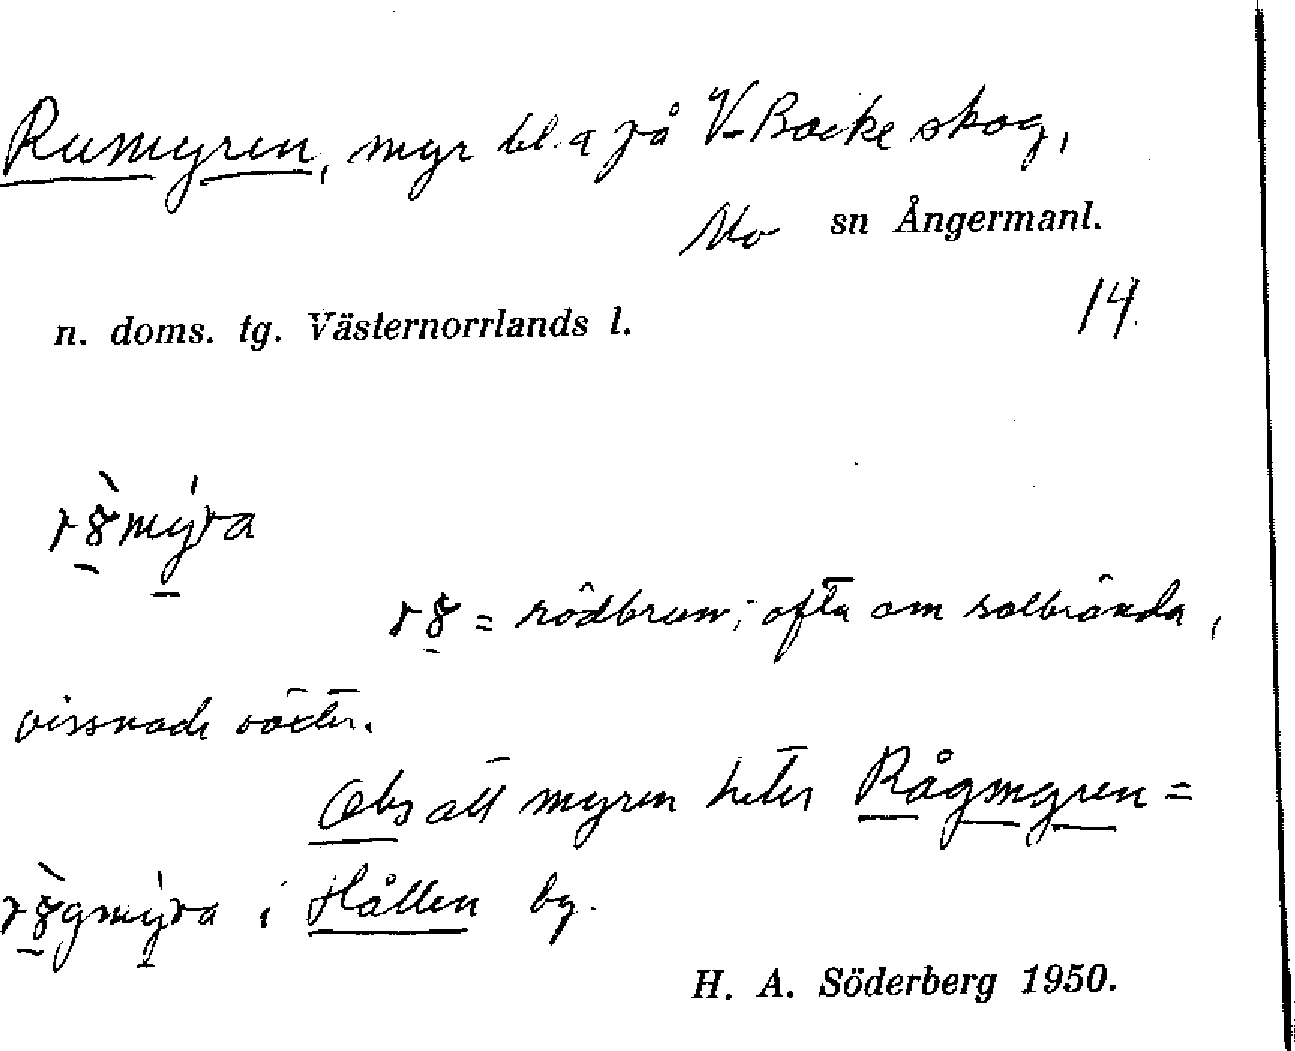 Rumyren, myr bl. a på V-Backe skog,
Mo sn Ångermanl.
14.
n. doms. tg. Västernorrlands l.
= rödbrun; ofta om solbrända,
vissnade växter.
Obs att myren heter Rågmyren =
i Hållen by.
H. A. Söderberg 1950.